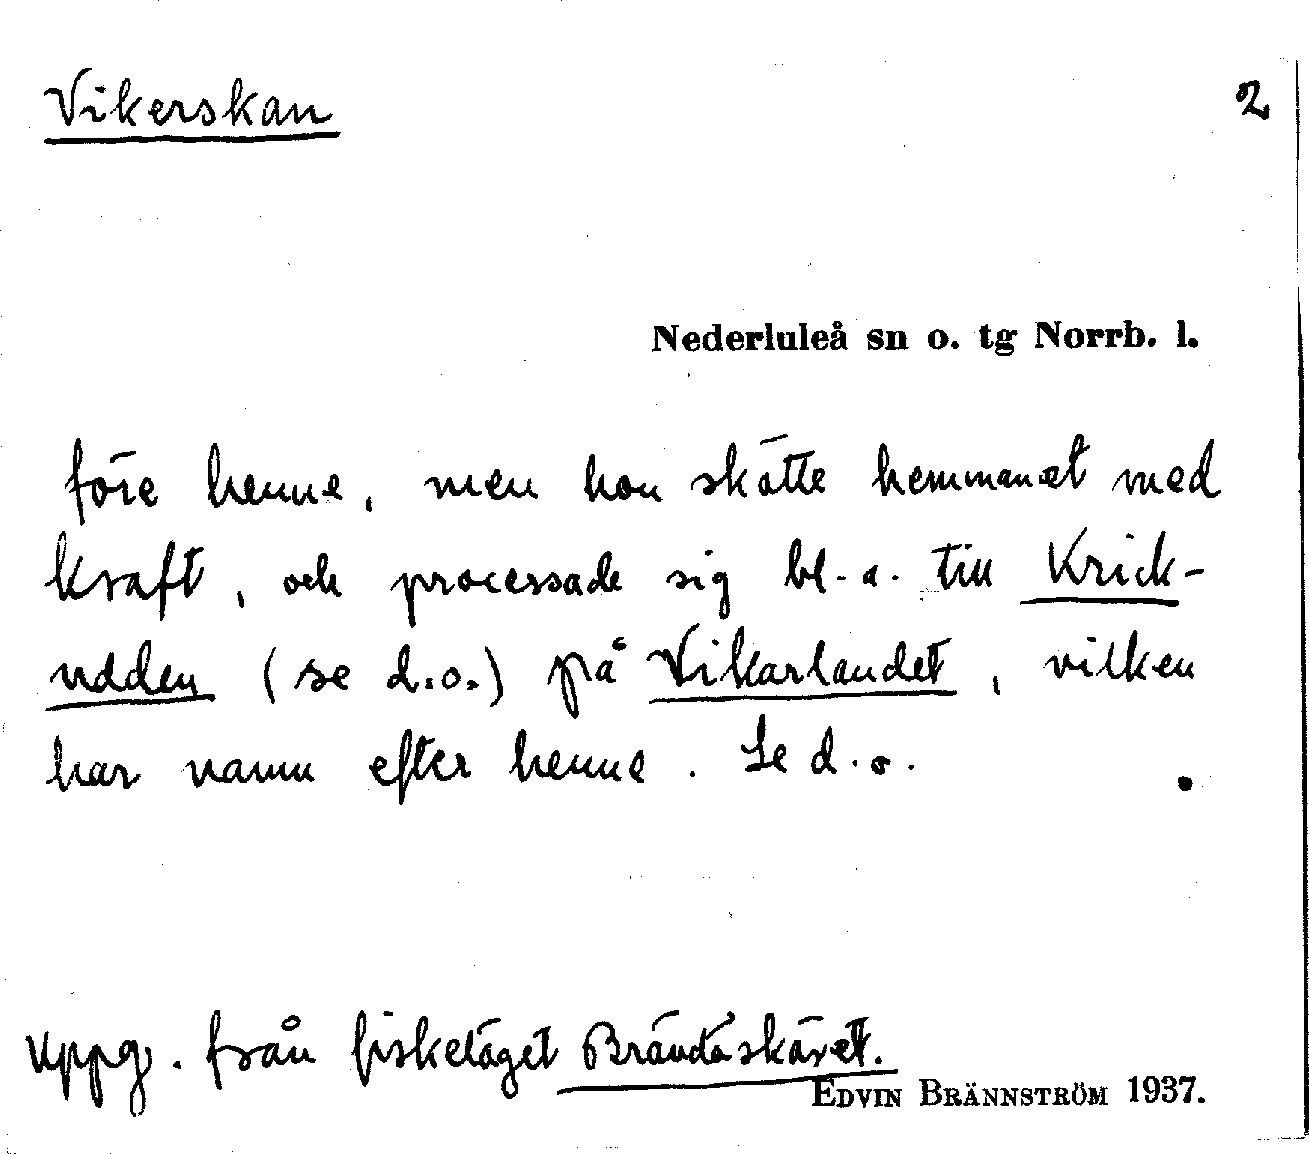 Vikerskan 2
Nederluleå sn o. tg Norrb. l.
före henne, men hon skötte hemmanet med
kraft, och processade sig bl. a. till Krick-
udden (se d.o.) på Vikarlandet, vilken
har namn efter henne. Se d.o.
Uppg. från fiskeläget Brändöskäret.
EDVIN BRÄNNSTRÖM 1937.